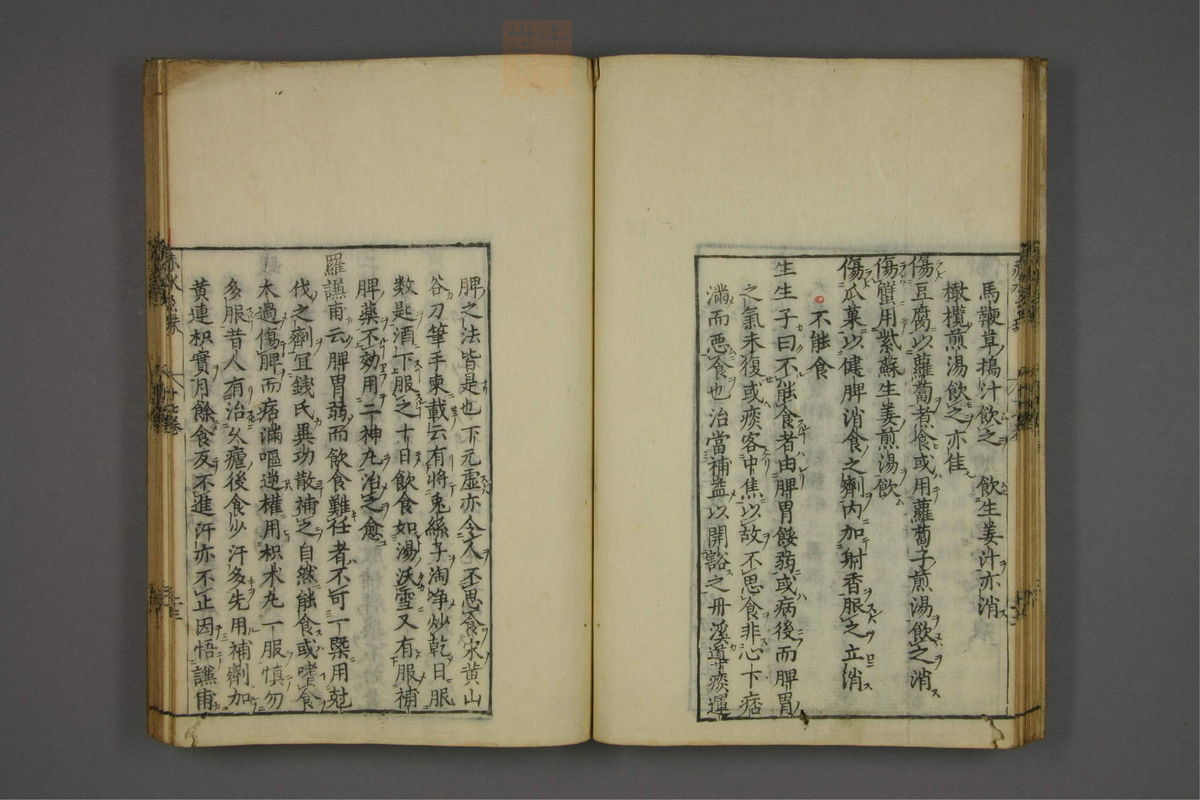 馬鞭草搗汁飲之 飲生姜汁亦消
橄欖煎湯飲之亦佳
傷豆腐以蘿蔔煮食或用蘿蔔子煎湯飲之消
傷蟹用紫蘇生姜煎湯飲
傷瓜菓以健脾消食之劑内加射香服之立消
不能食
生生子曰不能食者由脾胃餒弱或病後而脾胃
之氣未復或痰客中焦以故不思食非心下痞
滿而惡食也治當補益以開豁之丹溪導痰運
脾之法皆是也下元虛亦令人不思食宋黄山
谷刀筆手柬載云有將兎絲子淘净炒乾日服
数匙酒下服之十日飲食如湯沃雪又有服補
脾藥不効用二神丸治之愈
羅謙甫云脾胃弱而飲食難任者不可一槩用尅
伐之劑宜錢氏異功散補之自然能食或嗜食
太過傷脾而痞滿嘔逆權用枳术丸一服慎勿
多服昔人有治久瘧後食少汗多先用補劑加
黄連枳實月餘食反不進汗亦不止因悟謙甫